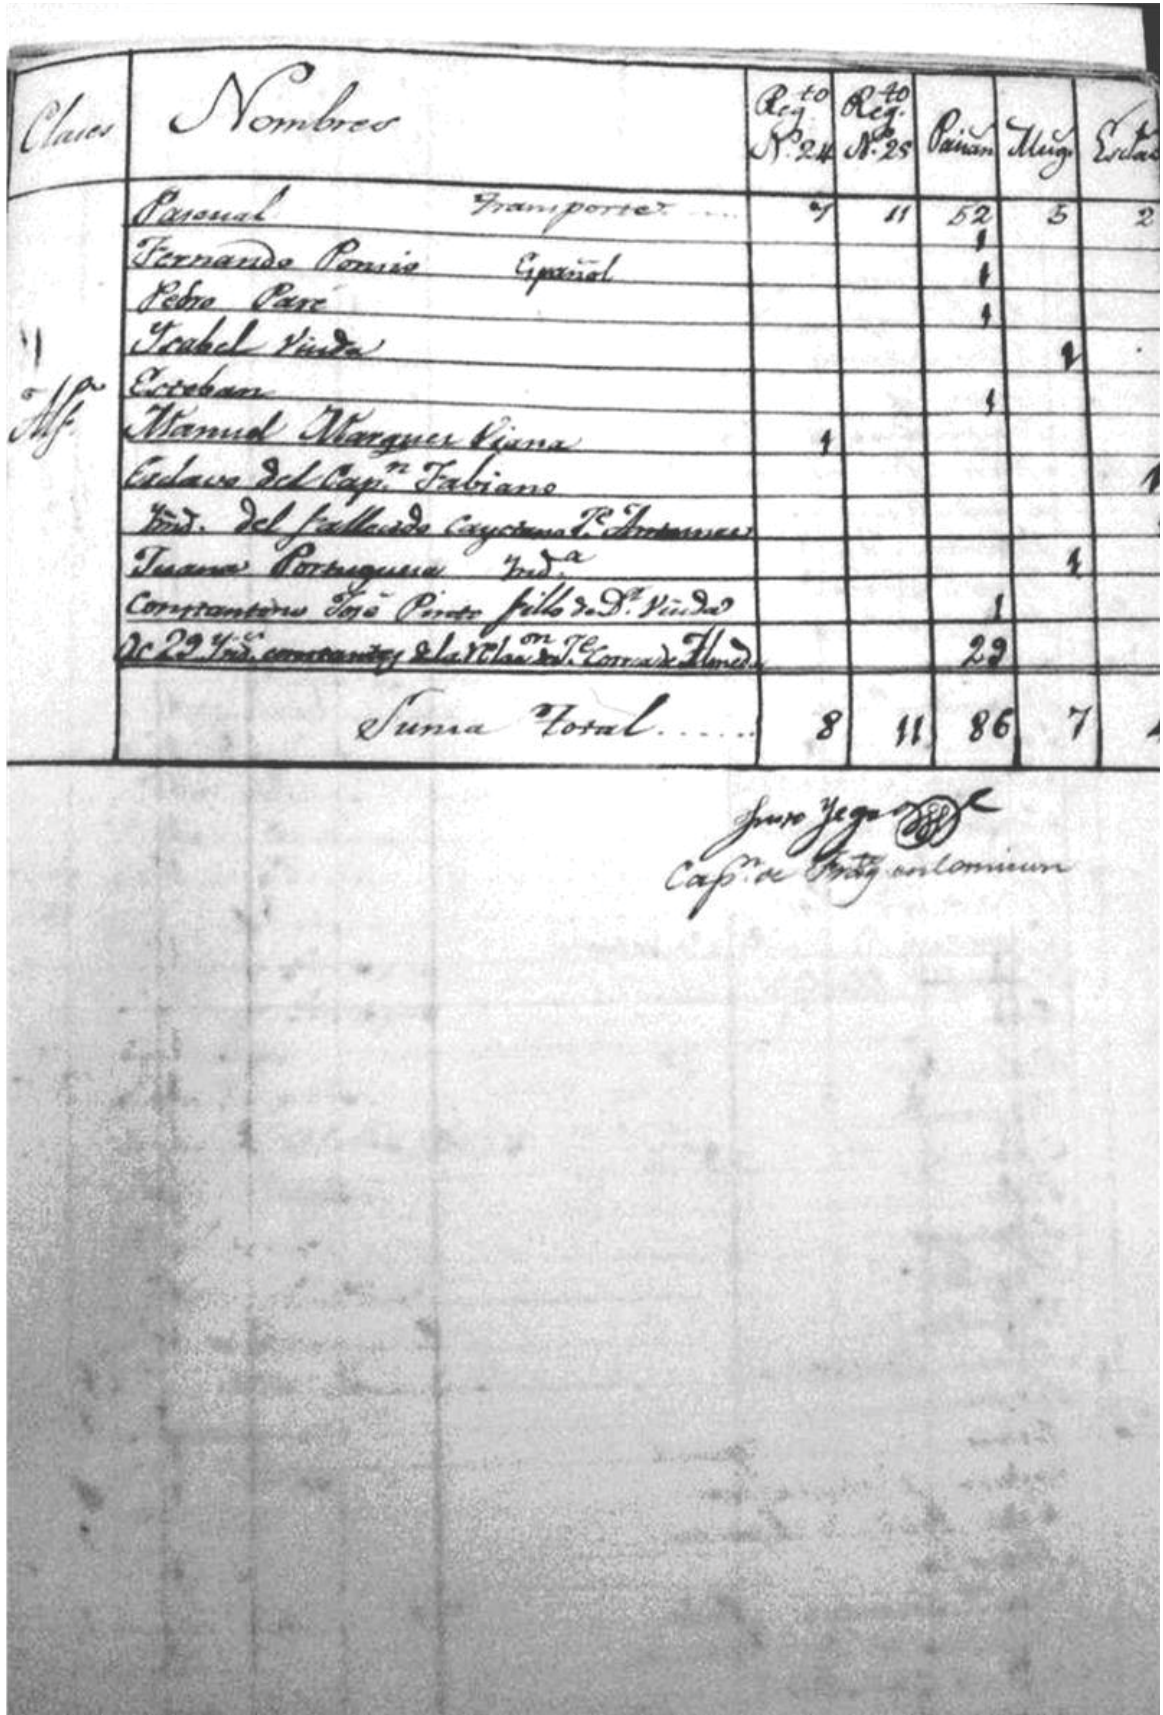 Clases Nombres Reg.to N.º 24 Reg.to N.º 25 Paisan. Mug.
Pascual Transporte 7 11 52 5 2
1
Fernando Poncio Español 1
Pedro Paré 1
Ysabel Viuda 1
Esteban 1
Alf.
Manuel Marques Viana 1
Esclavo del Cap.n Fabiano
Ynd. del fallecido Cayetano
Juana Portuguesa Ynd.a 1
Constantino José Pinto hillo de D.a Viuda 1
De 29 Ynd.s constantes de la Rela.on de J.e Correa de Almed.a 29
Suma Total...... 8 11 86 7
Cap.n de Frag.ta en Comicion